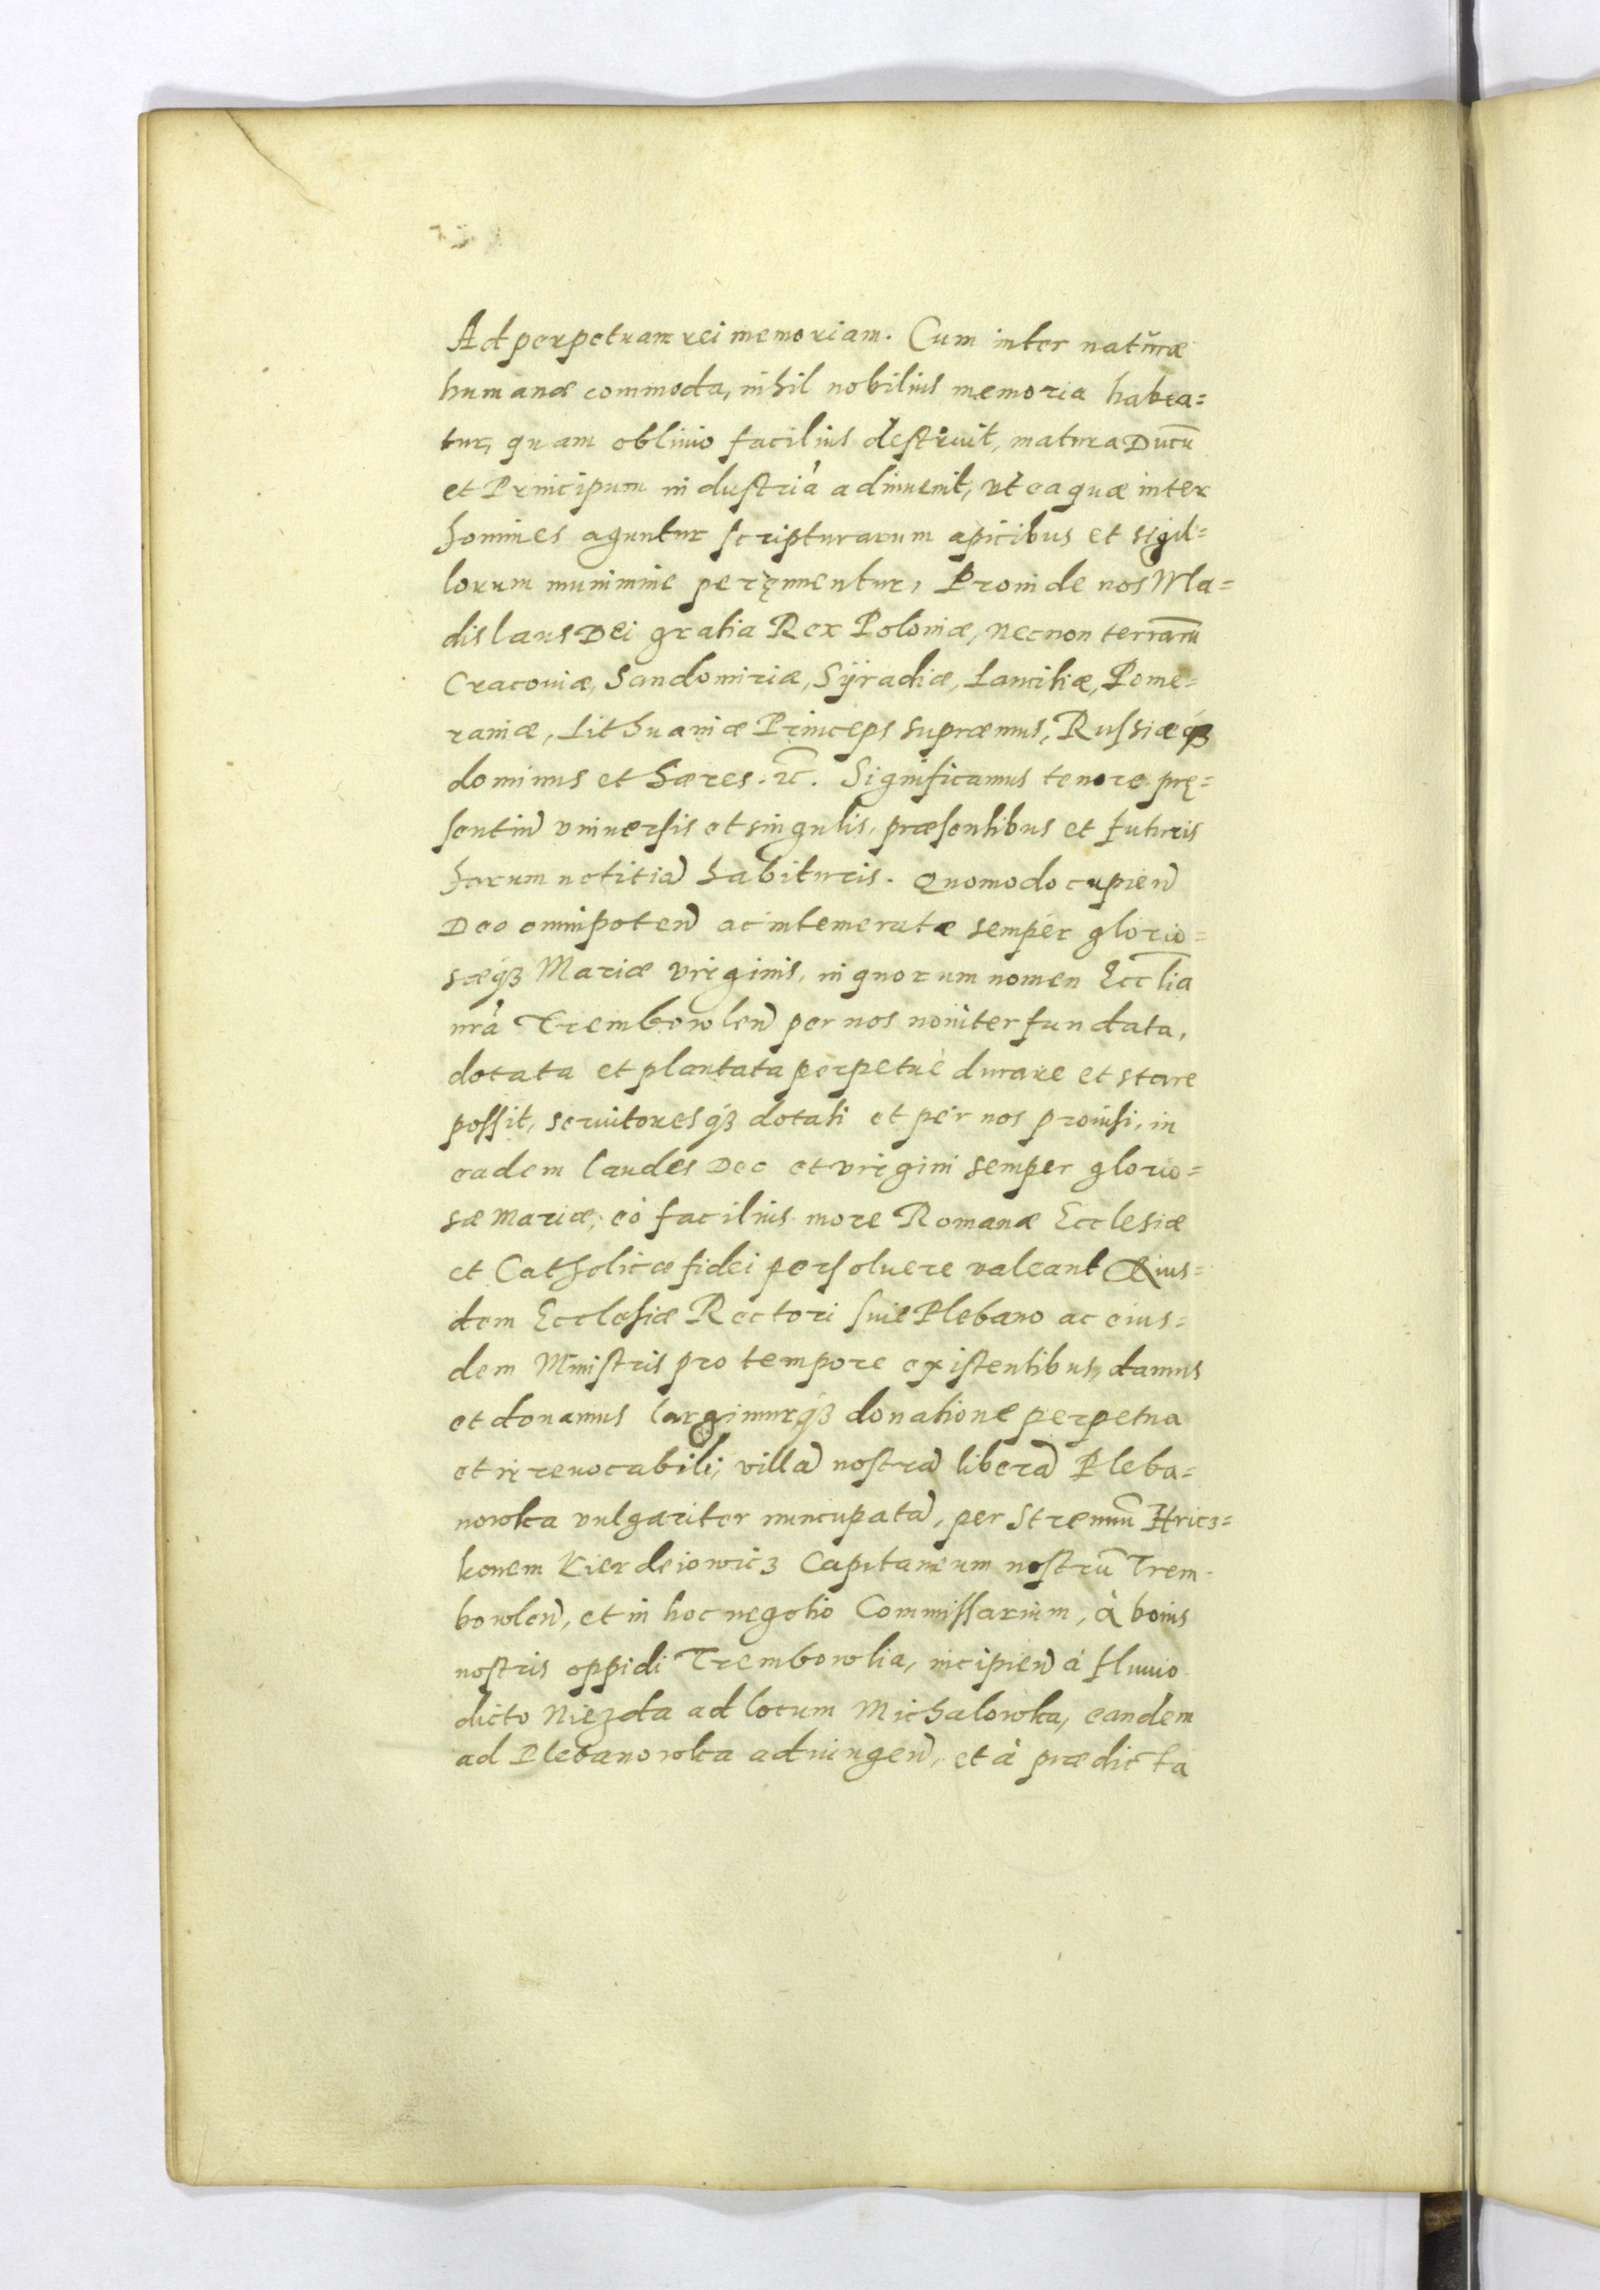 Ad perpetuam rei memoriam. Cum inter naturæ
humanæ commoda, nihil nobilius memoria habea=
tur, quam oblivio facilius destruit, matura Ducũ
et Principum industriâ adinuenit, vt ea quæ inter
homines aguntur scripturarum apicibus et sigil=
lorum munimine peręnnentur, Proinde nos Wla=
dislaus Dei gratia Rex Poloniæ, necnon terrarũ
Cracouiæ, Sandomiriæ, Syradiæ, Lancitiæ, Pome=
raniæ, Lithuaniæ Princeps supræmus, Russiæq3
dominus et hæres. ꝛc̃. Significamus tenore prę=
sentiũ vniuersis et singulis, præsentibus et futuris
harum notitiã habituris. Quomodo cupieñ
Deo omnipoteñ ac intemeratæ semper glorio=
sæq3 Mariæ virginis, in quorum nomen Eccl̃ia
nrà Tremboẘleñ per nos nouiter fundata,
dotata et plantata perpetuè durare et stare
possit, seruitoresq3 dotati et per nos prouisi, in
eadem laudes Deo et virgini semper glorio=
sæ Mariæ, eò facilius more Romanæ Ecclesiæ
et Catholicæ fidei persoluere valeant Eius=
dem Ecclesiæ Rectori siue Plebano ac eius=
dem Ministris pro tempore existentibus, damus
et donamus largimurq3 donatione perpetua
et irreuocabili, villã nostrã liberã Pleba=
nowka vulgariter nuncupatã, per Strenuũ Hric3=
konem Kierdeiowic3 Capitaneum nostrũ Trem=
bowleñ, et in hoc negotio Commissarium, à bonis
nostris oppidi Trembowlia, incipieñ à fluuio
dicto Niezda ad locum Michalowka, eandem
ad Plebanowka adiungeñ, et à prædicta